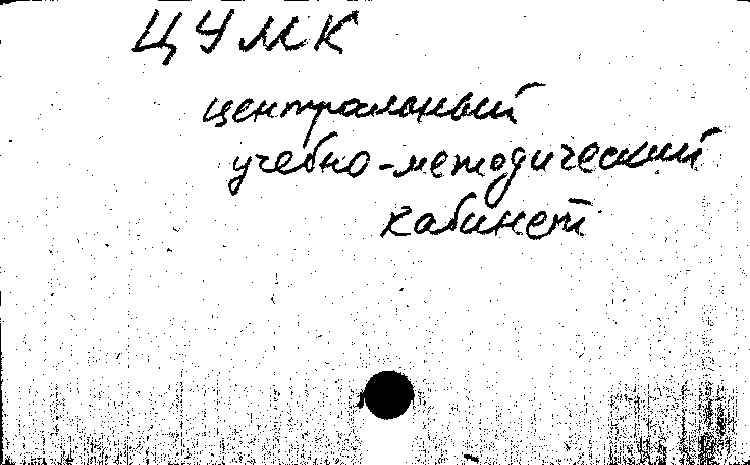 ЦУМК
центральный
учебно-методический
кабинет